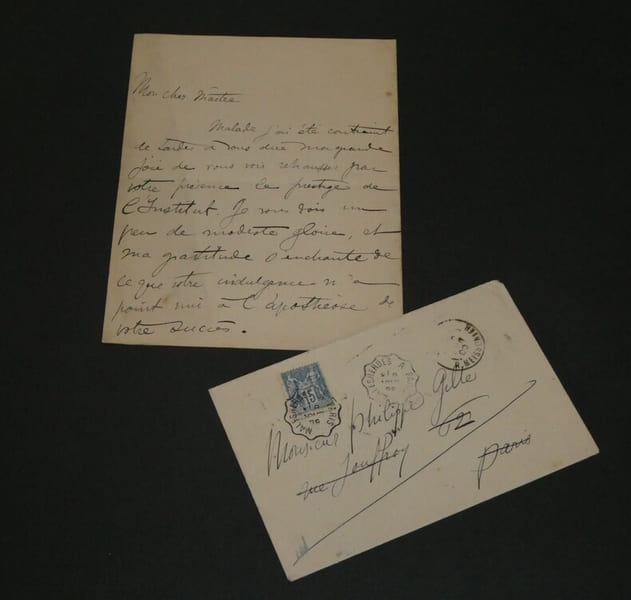 Mon cher Maître
Malade j'ai été contraint
de tarder à vous dire ma grande
joie de vous voir rehausser par
votre présence le prestige de
l'Institut. Je vous dois un
peu de modeste gloire, et
ma gratitude s'enchante de
ce que votre indulgence n'a
point nui à l'apothéose de
votre succès.
15
Monsieur Philippe Gille
rue Jouffroy 62
Paris